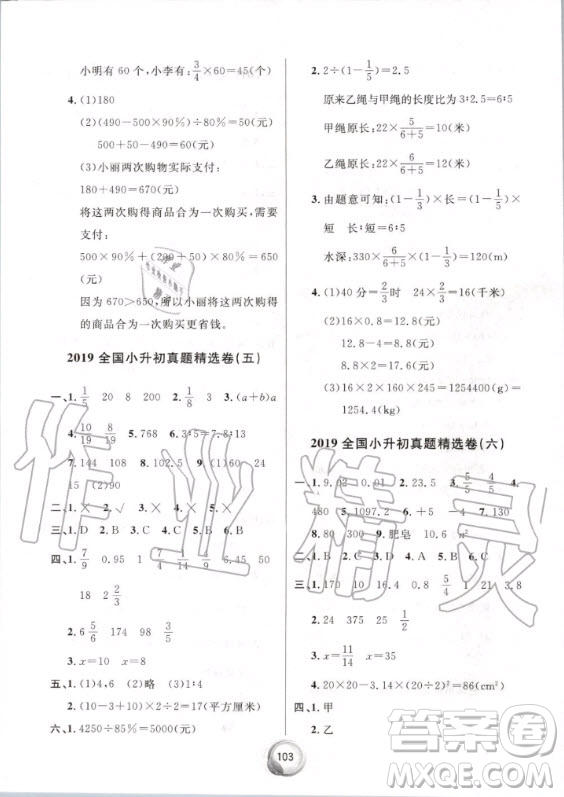 小明有60个,小李有:3/4×60=45(个)
4.(1)180
(2)(490-500×90%)÷80%=50(元)
500+50-490=60(元)
(3)小丽两次购物实际支付:
180+490=670(元)
将这两次购得商品合为一次购买,需要
支付:
500×90%+(200+50)×80%=650
(元)
因为670>650,所以小丽将这两次购得
的商品合为一次购买更省钱。
2019全国小升初真题精选卷(五)
一、1.1/5 20 8 200 2.1/8 3.(a+b)a
4.10/19 8/19 5.768 6.3∶5=7.8∶
7.144 108 8.102.5 9.(1)60 24
15(2)90
二、1.× 2.√
三、1.D 2.B 3.B 4.D 5.C
四、1.7/9 0.95 1 6.45 50
18 2 2/3
2.6 5/6 174 98 33
3.x=10 x=8
五、1.(1)4,6 (2)略 (3)17(平方厘米)
六、1.4250÷85%=5000(元)
2.2÷(1-1/5)=2.5
原来乙绳与甲绳的长度比为3∶2.5=6∶5
甲绳原长:22×5/(6+5)=10(米)
乙绳原长:22×6/(6+5)=12(米)
3.由题意可知:(1-1/3)×长=(1-1/5)×
短 长∶短=6∶5
水深:330×6/(6+5)×(1-1/3)=120(m)
4.(1)40分=2/3时 24×2/3=16(千米)
(2)16×0.8=12.8
12.8-4=8.8
8.8×2=17.6
(3)16×2×(1+1/4)×1254400(g)
=1254.4(kg)
2019全国小升初真题精选卷(六)
一、1.9.02 0.01 2.23.5 3.5/5 4/5 4.
480 5.1092 6.+5 -4 7.130
8.80 300 9.肥皂 10.略
二、1.C 2.B 3.C 4.B 5.B
三、1.790 16.4 5/4 1 27 0.9 3.8
2.24 375 20 1/2
3.x=11/14 x=35
4.20×20-3.14×(20÷2)²=86(cm²)
四、1.甲
2.乙
103
作业精灵
答案卷
MXEQE.COM